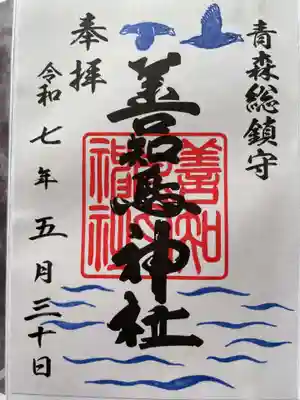 青森総鎮守
奉拝
善知鳥神社
善知鳥神社
令和七年五月三十日